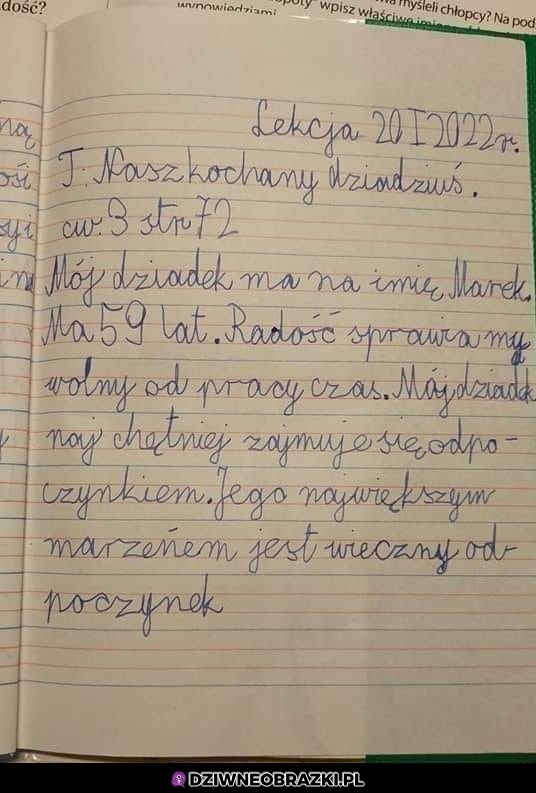 dość?
myśleli chłopcy? Na pod
wpisz właściwe
wypowiedziami
Lekcja 20 I 2022r.
T: Nasz kochany dziadziuś.
ćw. 3 str 72
Mój dziadek ma na imię Marek.
Ma 59 lat. Radość sprawia my
wolny od pracy czas. Mój dziadek
naj chętniej zajmuje się odpo-
czynkiem. Jego największym
marzeńem jest wieczny od-
poczynek
DZIWNEOBRAZKI.PL